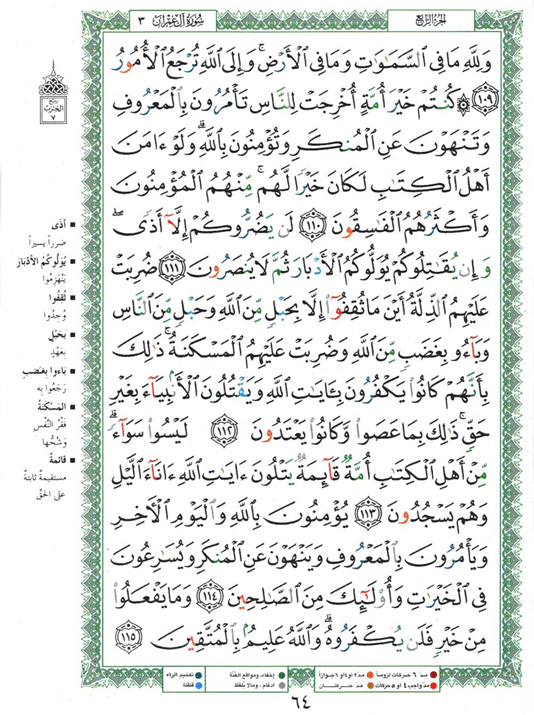 الجزء الرابع
سورة آل عمران ٣
وَلِلَّهِ مَا فِي السَّمَاوَاتِ وَمَا فِي الْأَرْضِ ۚ وَإِلَى اللَّهِ تُرْجَعُ الْأُمُورُ
﴿١٠٩﴾ ۞ كُنتُمْ خَيْرَ أُمَّةٍ أُخْرِجَتْ لِلنَّاسِ تَأْمُرُونَ بِالْمَعْرُوفِ
وَتَنْهَوْنَ عَنِ الْمُنكَرِ وَتُؤْمِنُونَ بِاللَّهِ ۗ وَلَوْ ءَامَنَ
أَهْلُ الْكِتَابِ لَكَانَ خَيْرًا لَّهُم ۚ مِّنْهُمُ الْمُؤْمِنُونَ
وَأَكْثَرُهُمُ الْفَاسِقُونَ ﴿١١٠﴾ لَن يَضُرُّوكُمْ إِلَّا أَذًى ۖ
وَإِن يُقَاتِلُوكُمْ يُوَلُّوكُمُ الْأَدْبَارَ ثُمَّ لَا يُنصَرُونَ ﴿١١١﴾ ضُرِبَتْ
عَلَيْهِمُ الذِّلَّةُ أَيْنَ مَا ثُقِفُوا إِلَّا بِحَبْلٍ مِّنَ اللَّهِ وَحَبْلٍ مِّنَ النَّاسِ
وَبَاءُو بِغَضَبٍ مِّنَ اللَّهِ وَضُرِبَتْ عَلَيْهِمُ الْمَسْكَنَةُ ۚ ذَٰلِكَ
بِأَنَّهُمْ كَانُوا يَكْفُرُونَ بِـَٔايَاتِ اللَّهِ وَيَقْتُلُونَ الْأَنبِيَاءَ بِغَيْرِ
حَقٍّ ۚ ذَٰلِكَ بِمَا عَصَوا وَّكَانُوا يَعْتَدُونَ ﴿١١٢﴾ ۞ لَيْسُوا سَوَاءً ۗ
مِّنْ أَهْلِ الْكِتَابِ أُمَّةٌ قَائِمَةٌ يَتْلُونَ ءَايَاتِ اللَّهِ ءَانَاءَ اللَّيْلِ
وَهُمْ يَسْجُدُونَ ﴿١١٣﴾ يُؤْمِنُونَ بِاللَّهِ وَالْيَوْمِ الْآخِرِ
وَيَأْمُرُونَ بِالْمَعْرُوفِ وَيَنْهَوْنَ عَنِ الْمُنكَرِ وَيُسَارِعُونَ
فِي الْخَيْرَاتِ وَأُولَٰئِكَ مِنَ الصَّالِحِينَ ﴿١١٤﴾ وَمَا يَفْعَلُوا
مِنْ خَيْرٍ فَلَن يُكْفَرُوهُ ۗ وَاللَّهُ عَلِيمٌ بِالْمُتَّقِينَ ﴿١١٥﴾
ربع
الحزب
٧
■ أَذًى
ضرراً يسيراً
■ يُوَلُّوكُمُ الأَدْبَارَ
يَنْهَزِمُوا
■ ثُقِفُوا
وُجِدُوا
■ بِحَبْلٍ
بِعَهْدٍ
■ بَاءُوا بِغَضَبٍ
رَجَعُوا بِهِ
■ المَسْكَنَةُ
فَقْرُ النَّفْسِ
وَشُحُّهَا
■ قَائِمَةٌ
مستقيمةٌ ثابتةٌ
على الحقّ
مدّ ٦ حركات لزوماً ● مدّ ٢ أو ٤ أو ٦ جوازاً
مدّ واجب ٤ أو ٥ حركات ● مدّ حركتان
إخفاء، ومواقع الغُنَّة
إدغام، وما لا يُلفَظ
تفخيم الراء
قلقلة
٦٤